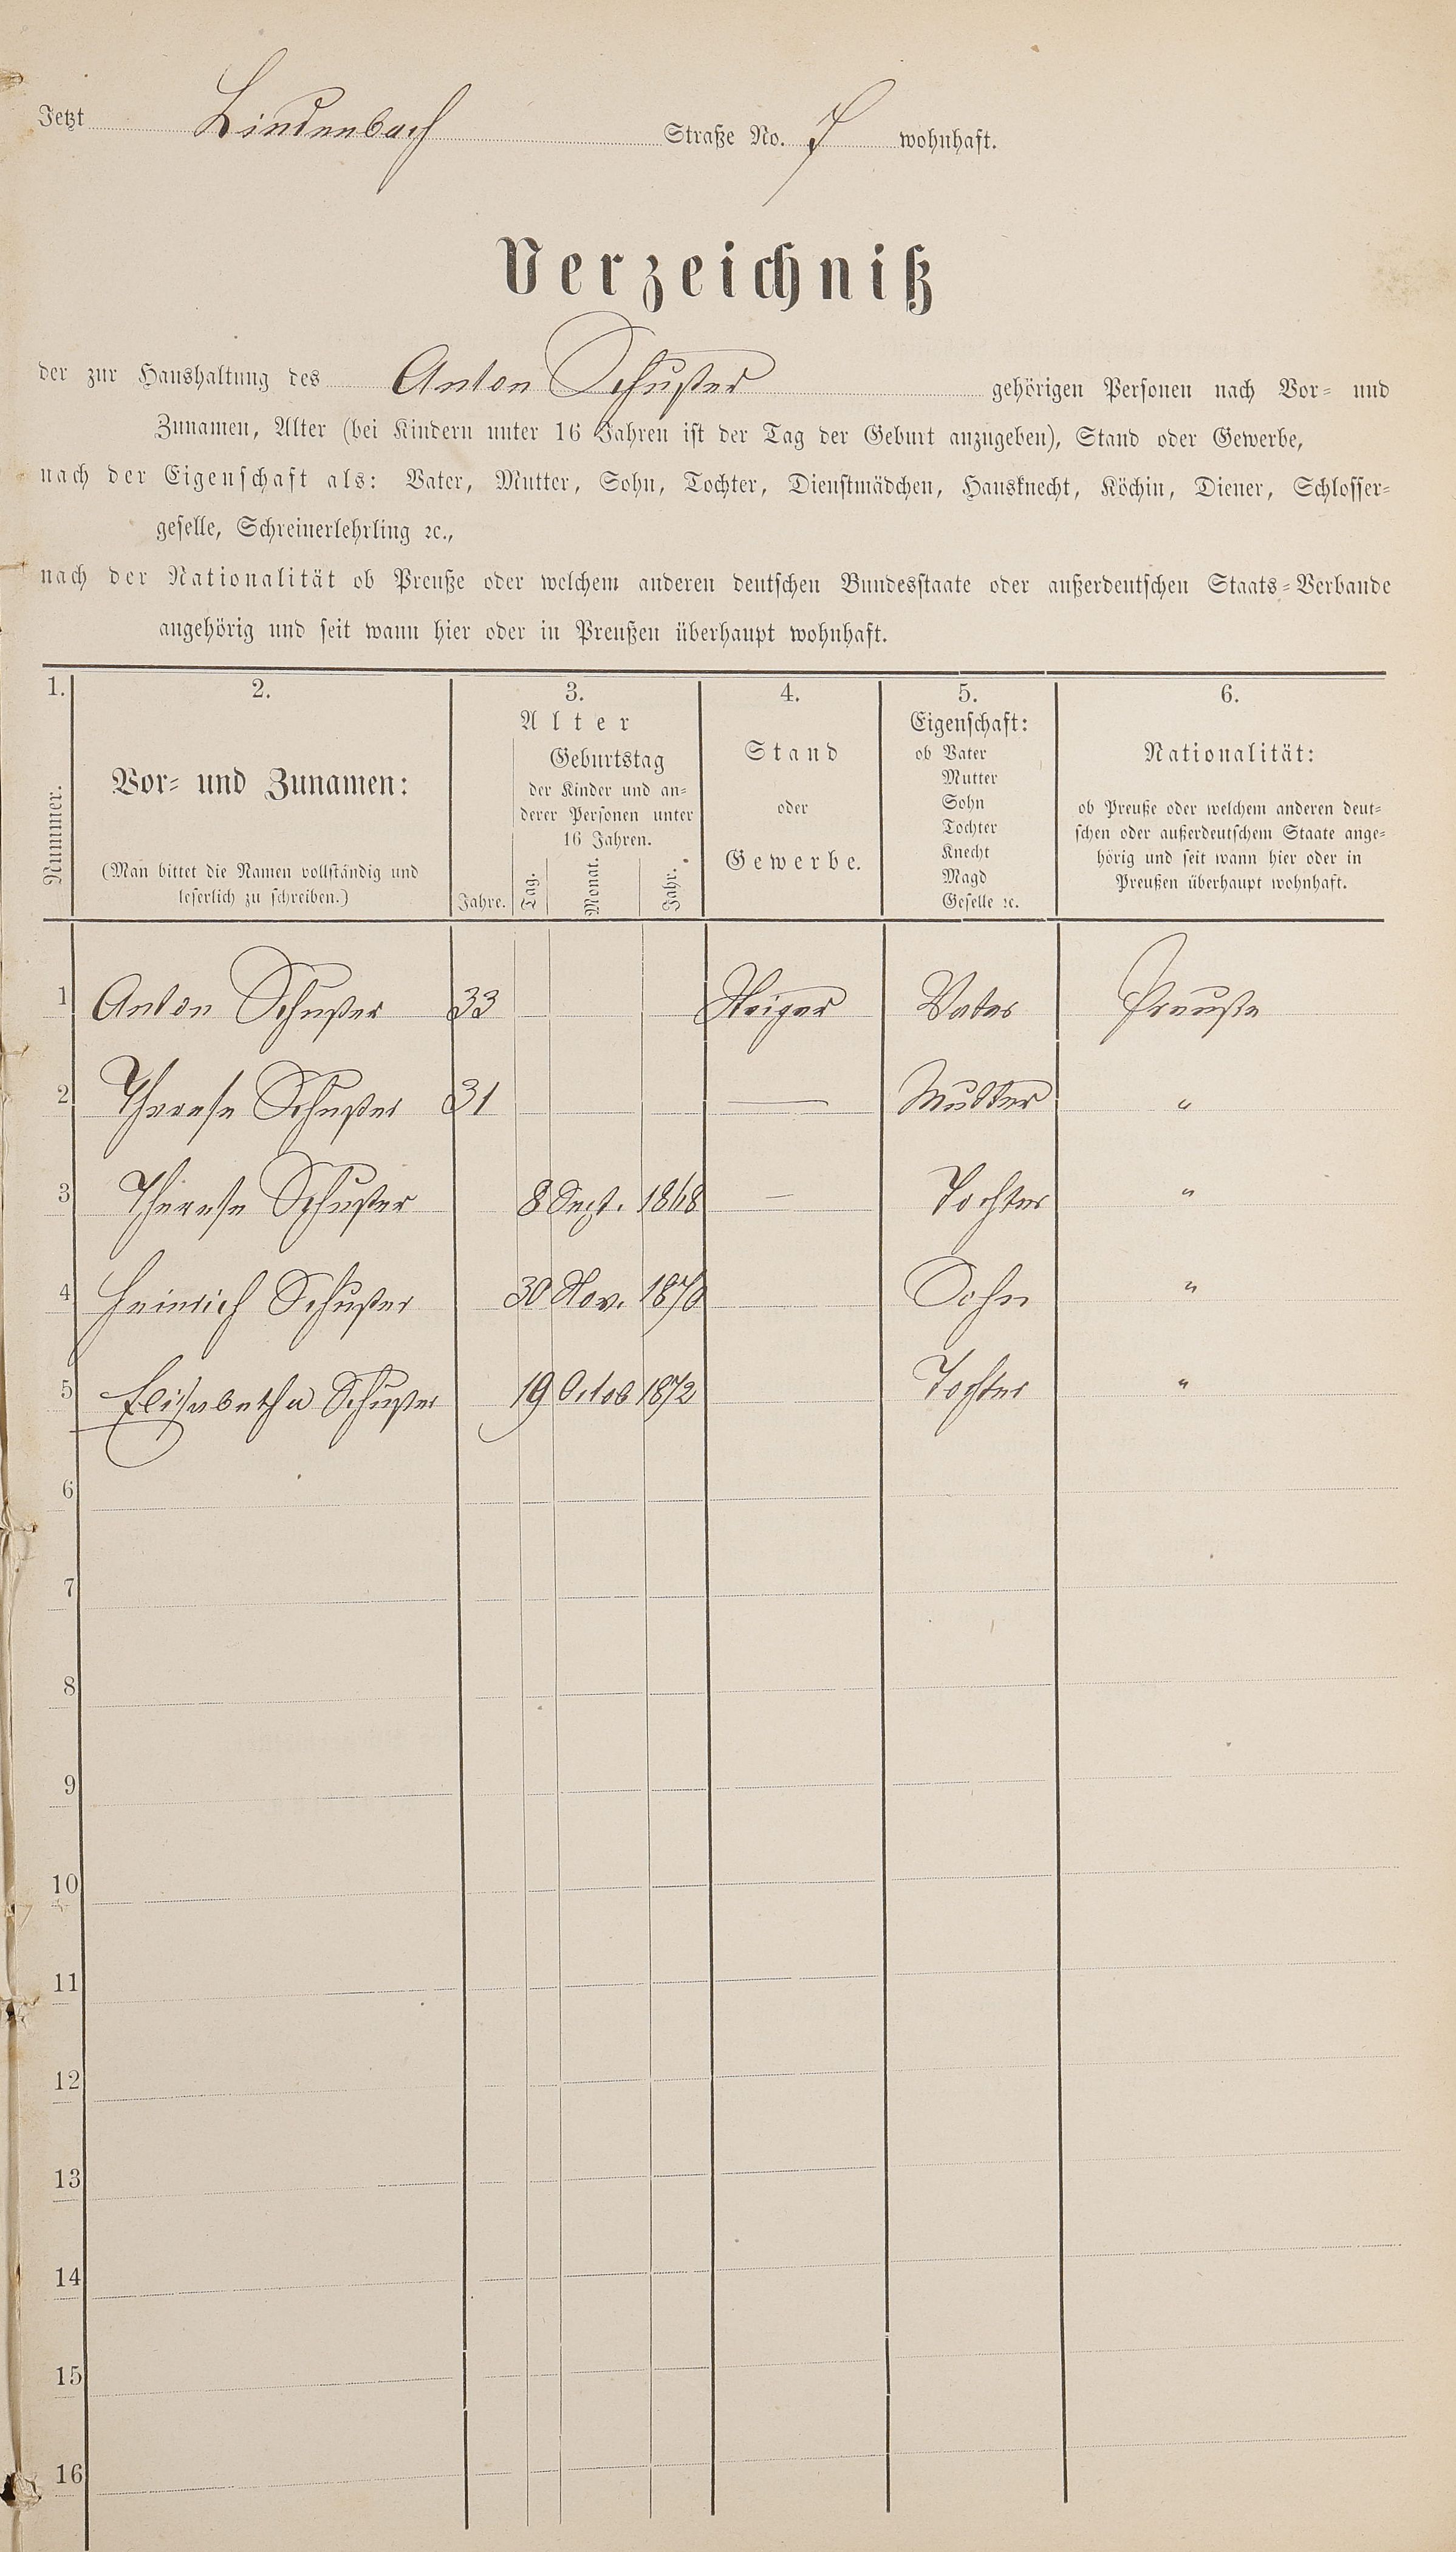 Jetzt Lindenbach Straße No. 7 wohnhaft.
Verzeichniß
der zur Haushaltung des Anton Schuster gehörigen Personen nach Vor- und
Zunamen, Alter (bei Kindern unter 16 Jahren ist der Tag der Geburt anzugeben), Stand oder Gewerbe,
nach der Eigenschaft als: Vater, Mutter, Sohn, Tochter, Dienstmädchen, Hausknecht, Köchin, Diener, Schlosser-
geselle, Schreinerlehrling ꝛc.,
nach der Nationalität ob Preuße oder welchem anderen deutschen Bundesstaate oder außerdeutschen Staats-Verbande
angehörig und seit wann hier oder in Preußen überhaupt wohnhaft.
1.
Nummer.
2.
Vor- und Zunamen:
(Man bittet die Namen vollständig und
leserlich zu schreiben.)
3.
Alter
Jahre.
Geburtstag
der Kinder und an-
derer Personen unter
16 Jahren.
Tag.
Monat.
Jahr.
4.
Stand
oder
Gewerbe.
5.
Eigenschaft:
ob Vater
Mutter
Sohn
Tochter
Knecht
Magd
Geselle ꝛc.
6.
Nationalität:
ob Preuße oder welchem anderen deut-
schen oder außerdeutschem Staate ange-
hörig und seit wann hier oder in
Preußen überhaupt wohnhaft.
1 Anton Schuster 33 Steiger Vater Preuße
2 Therese Schuster 31 — Mutter "
3 Therese Schuster 8 Sept. 1868 — Tochter "
4 Heinrich Schuster 30 Nov. 1870 Sohn "
5 Elisabetha Schuster 19 Octob 1872 Tochter "
6
7
8
9
10
11
12
13
14
15
16